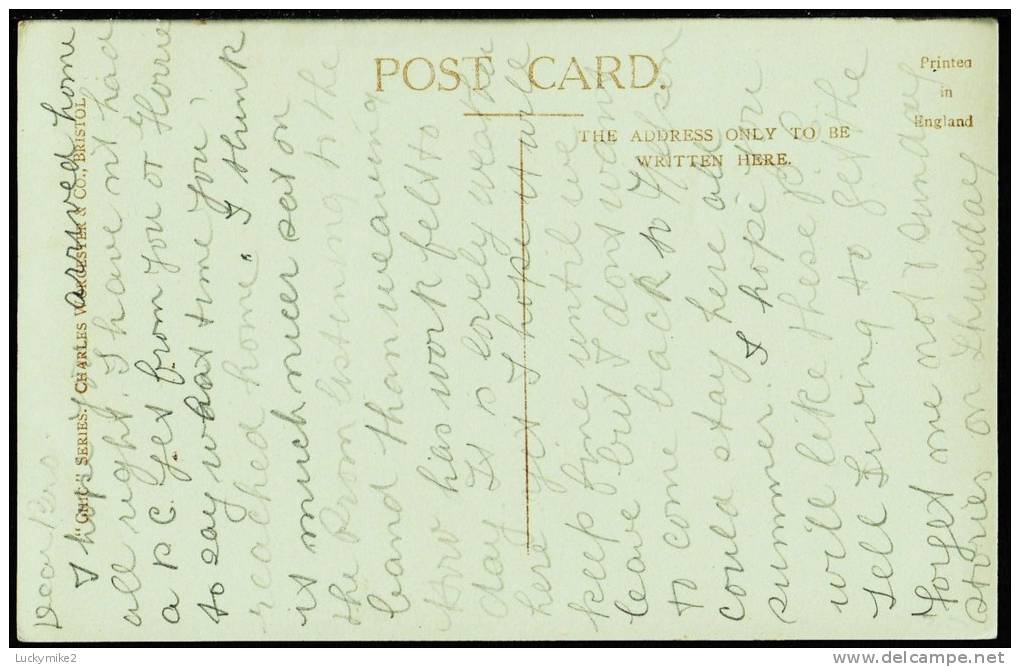 POST CARD.
THE ADDRESS ONLY TO BE
WRITTEN HERE.
Printed
in
England
"GHIC" SERIES. CHARLES WORCESTER & CO., BRISTOL.
Dear Bro
I hope you arrived home
all right. I have nt had
a P C yet from you or Florrie
to say what time you
reached home. I think
it is much nicer sat on
the Prom listening to the
band than weaving
how has work felt to
day It is lovely weather
here yet I hope it will
keep fine until we
leave but I dont want
to come back to
could stay here all
summer. I hope you
will like these P.C.
Tell Irving to get the
forget me not Sunday
stories on Thursday
Luckymike2
delcampe.net